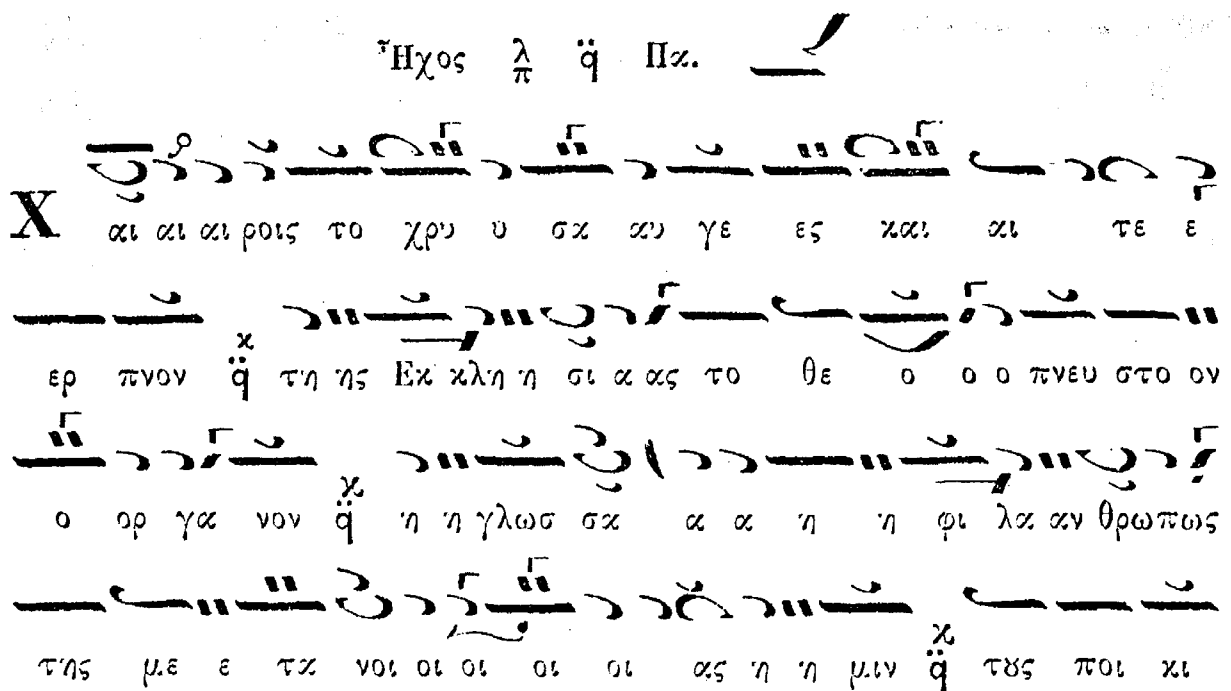 Ἦχος λ/π q̈ Πα.
Χ αι αι αι ροις το χρυ υ σα αυ γε ες και αι τε ε
ερ πνον q̈ τη ης Εκ κλη η σι α ας το θε ο ο ο πνευ στο ον
ο ορ γα νον q̈ η η γλωσ σα α α η η φι λα αν θρω πως
της με ε τα νοι οι οι οι οι ας η η μιν q̈ τȣς ποι κι